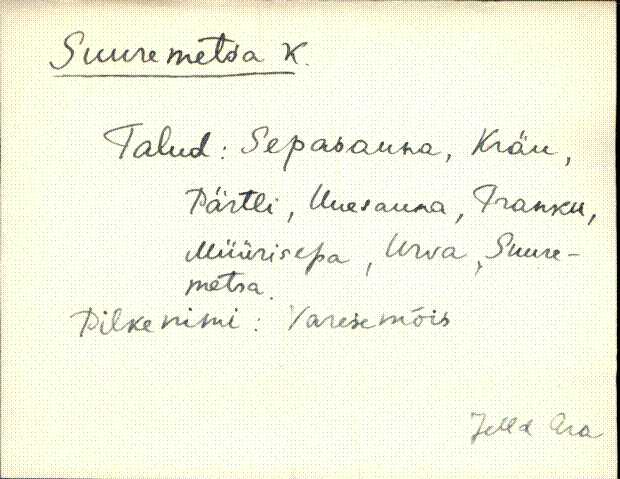 Suuremetsa K.
Talud: Sepasauna, Kräu,
Pärtli, Uuesauna, Pranku,
Müürisepa, Urva, Suure-
metsa.
Pilkenimi: Varesemõis